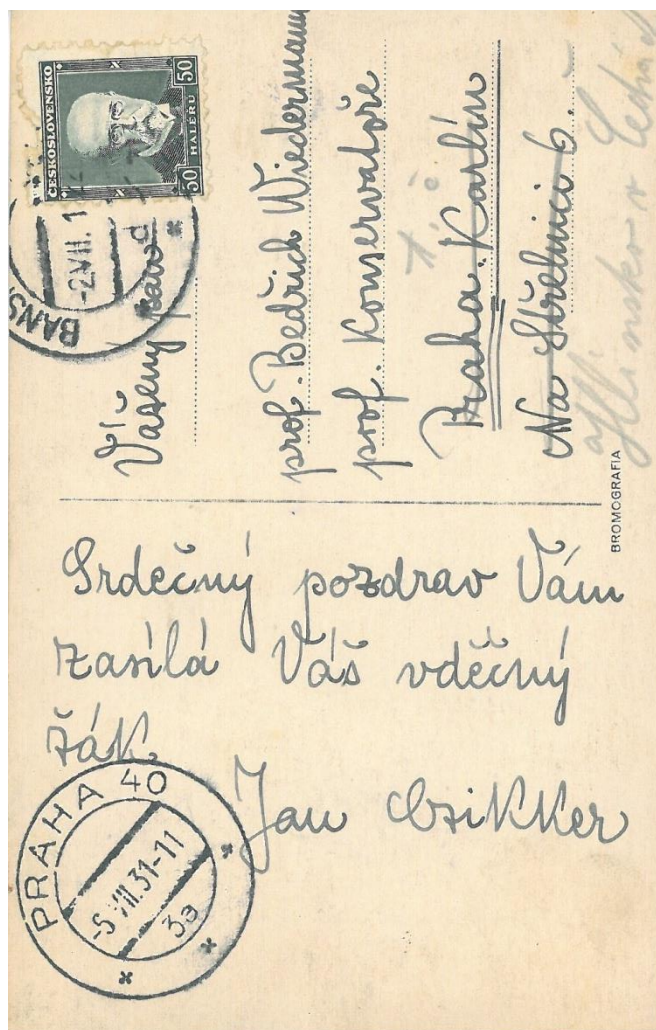 ČESKOSLOVENSKO
50 HALÉRU 50
BANS
-2.VII.
Vážený pan
prof. Bedřich Wiedermann
prof. Konservatoře
Praha. Karlín
Na Střelnici 6.
v Čechách
BROMOGRAFIA
Srdečný pozdrav Vám
zasílá Váš vděčný
žák
Jan Czikker
PRAHA 40
-5.VII.31-11
3a